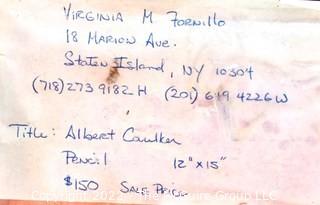 Virginia M Fornillo
18 Marion Ave.
Staten Island, NY 10304
(718) 273 9182 H (201) 649 4226 W
Title: Albert Caulker
Pencil 12" x 15"
$150 Sale Price